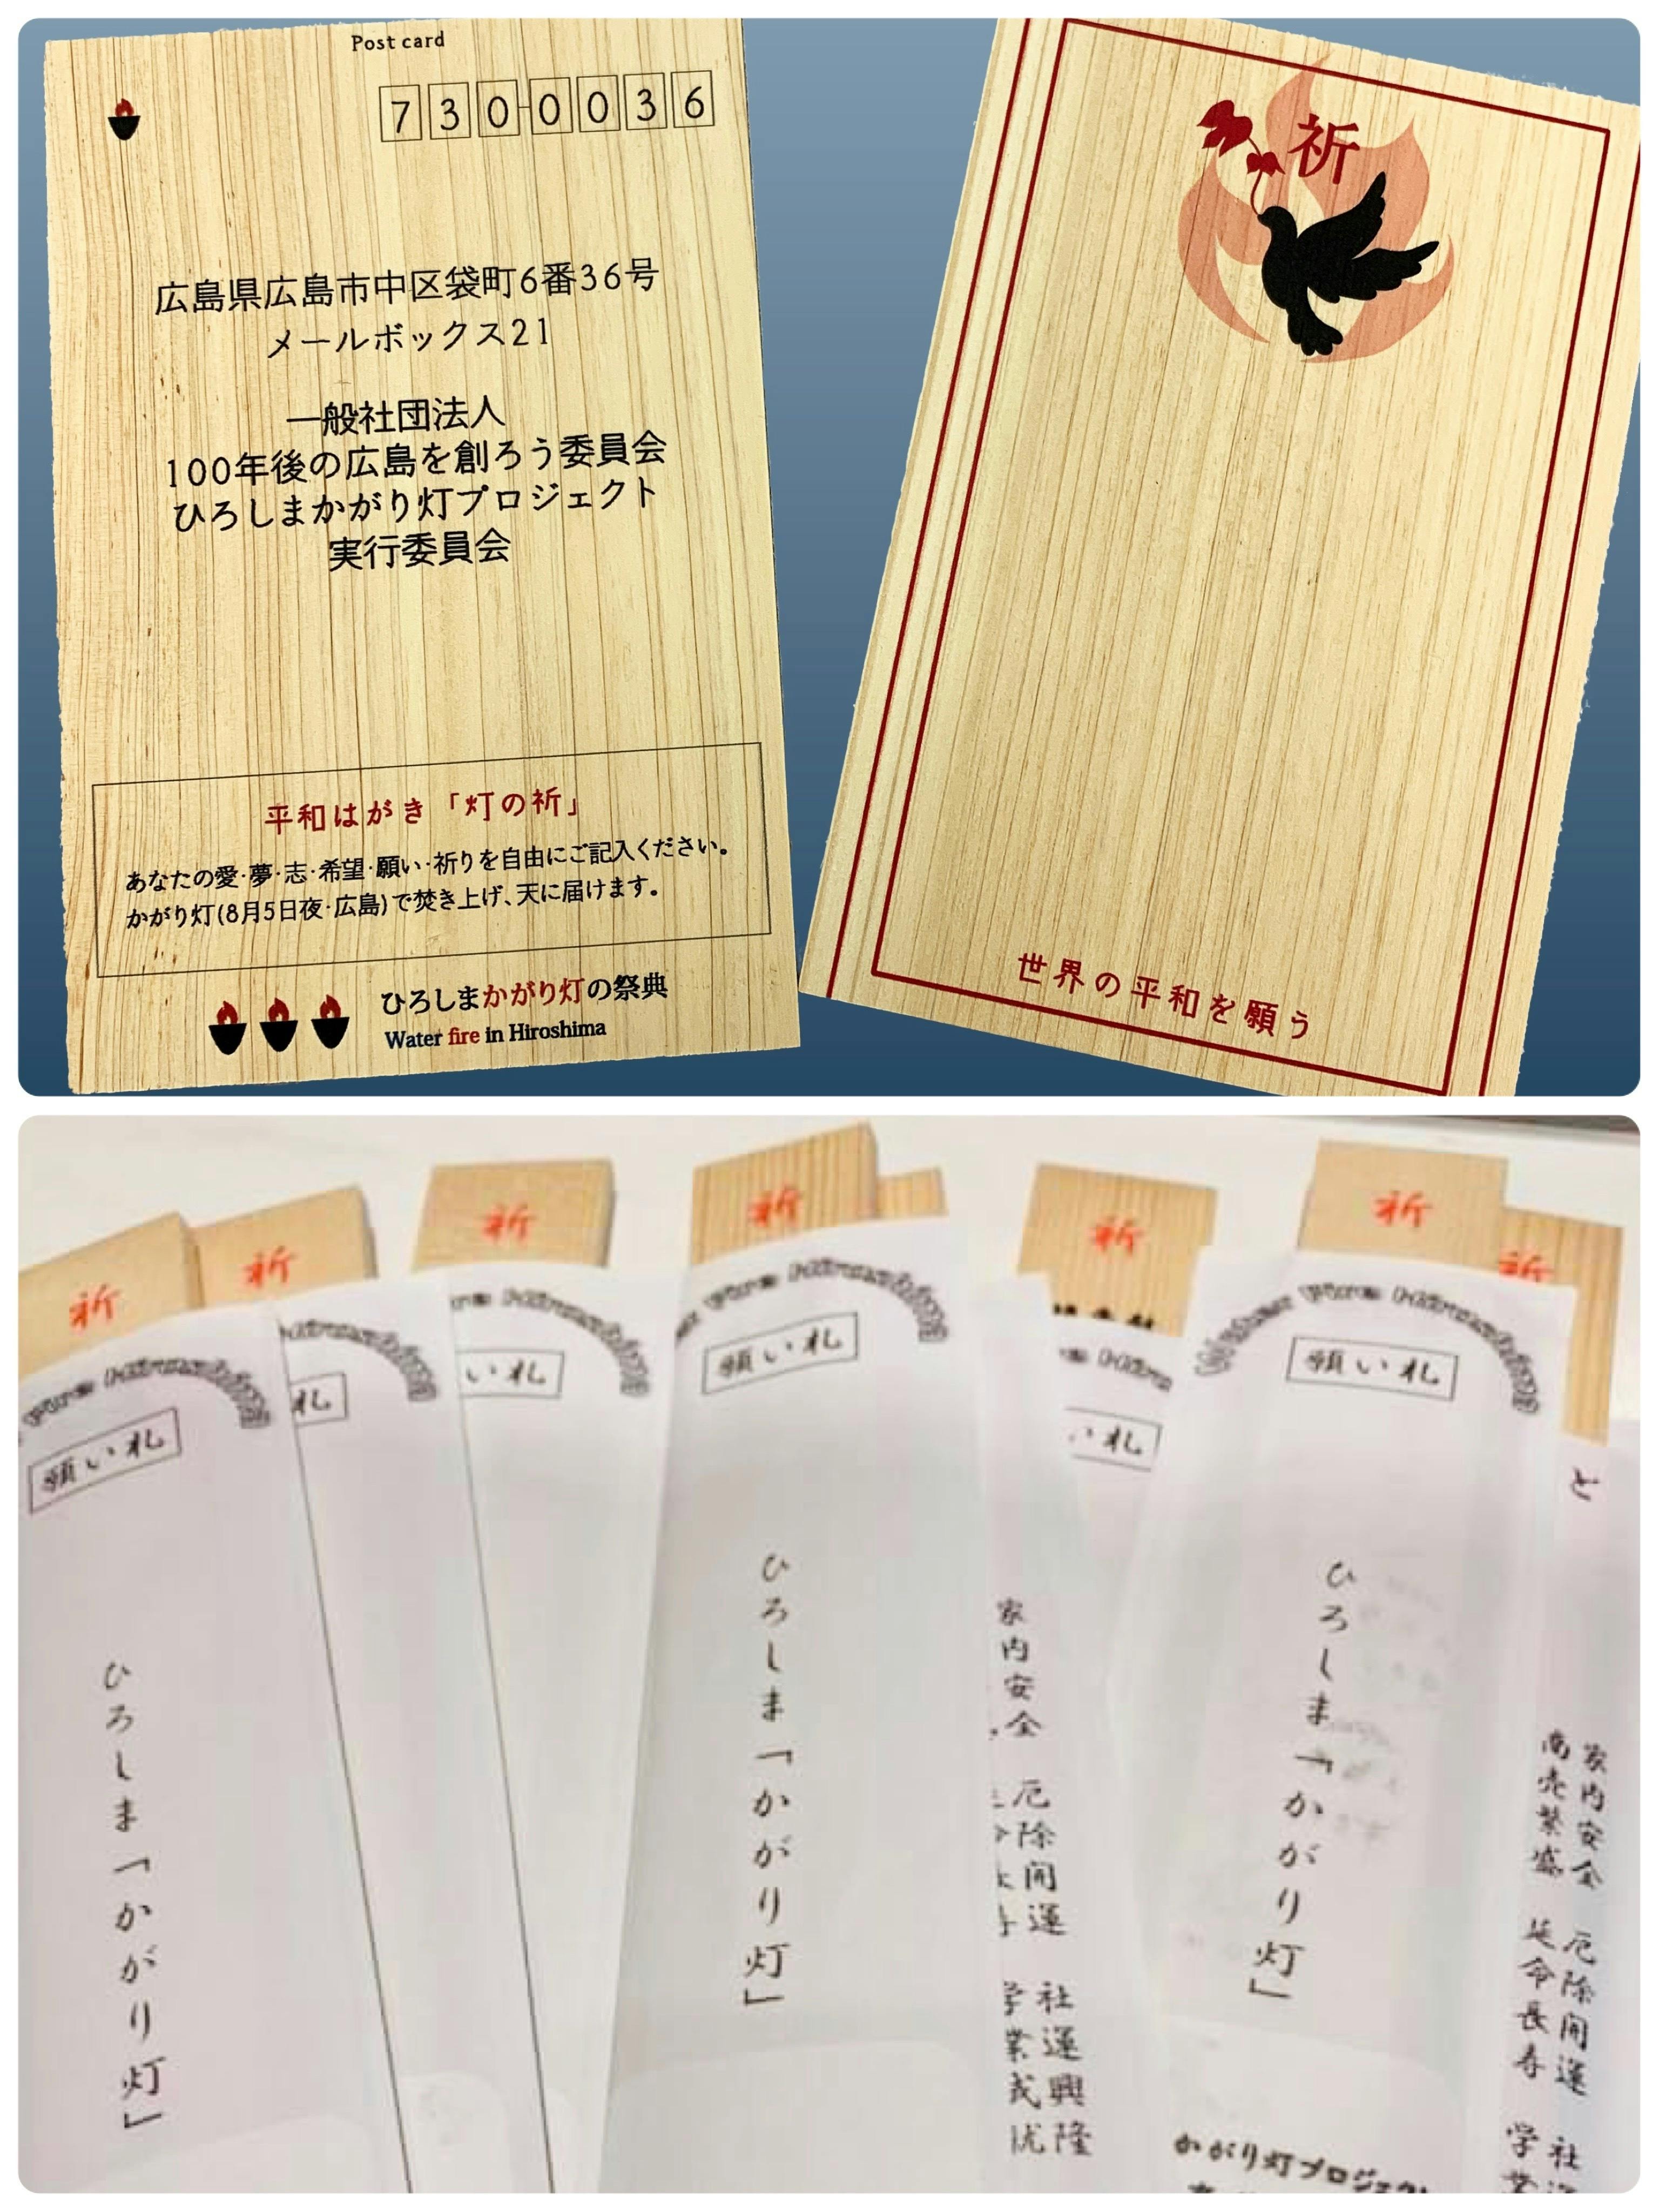 Post card
730-0036
広島県広島市中区袋町6番36号
メールボックス21
一般社団法人
100年後の広島を創ろう委員会
ひろしまかがり灯プロジェクト
実行委員会
平和はがき「灯の祈」
あなたの愛・夢・志・希望・願い・祈りを自由にご記入ください。
かがり灯(8月5日夜・広島)で焚き上げ、天に届けます。
ひろしまかがり灯の祭典
Water fire in Hiroshima
祈
世界の平和を願う
祈
祈
祈
祈
祈
祈
祈
Fire Hiroshima
願い札
ひろしま「かがり灯」
Hiroshima
札
Hiroshima
い札
Fire Hiroshima
願い札
ひろしま「かがり灯」
い札
家内安全
厄除開運
社運興隆
学業成
Water Fire Hiroshima
願い札
ひろしま「かがり灯」
かがり灯プロジェク
と
家内安全
厄除開運
社
商売繁盛
延命長寿
学業